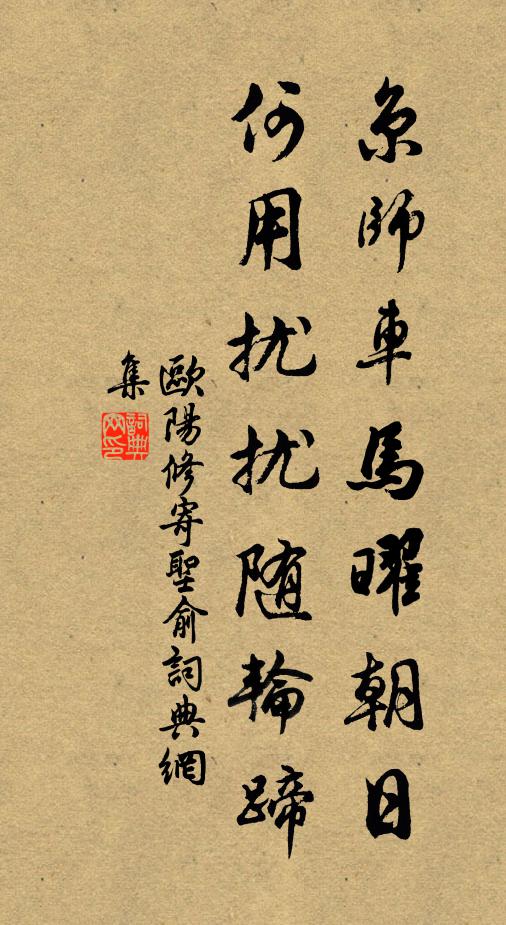 京師車馬曜朝日
何用扰扰随輪蹄
歐陽修寄聖俞詞典網
集
詞典
网印